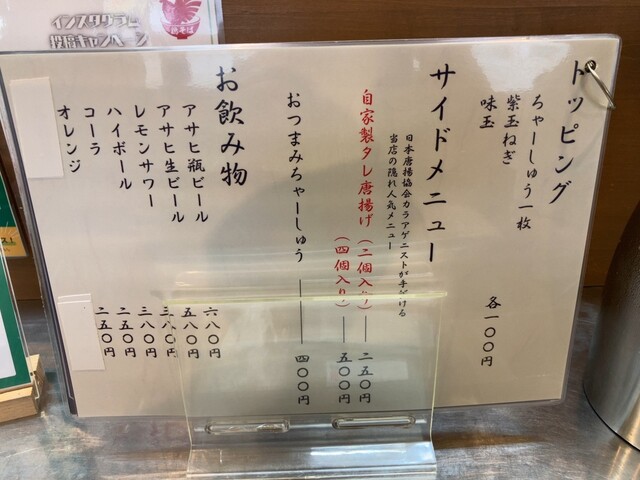 インスタグラム
投稿キャンペーン
トッピング
ちゃーしゅう一枚
紫玉ねぎ
味玉
各一〇〇円
サイドメニュー
日本唐揚協会カラアゲニストが手掛ける
当店の隠れ人気メニュー
自家製タレ唐揚げ（二個入り）―二五〇円
（四個入り）―五〇〇円
おつまみちゃーしゅう―四〇〇円
お飲み物
アサヒ瓶ビール 六八〇円
アサヒ生ビール 五八〇円
レモンサワー 三八〇円
ハイボール 三八〇円
コーラ 二五〇円
オレンジ 二五〇円